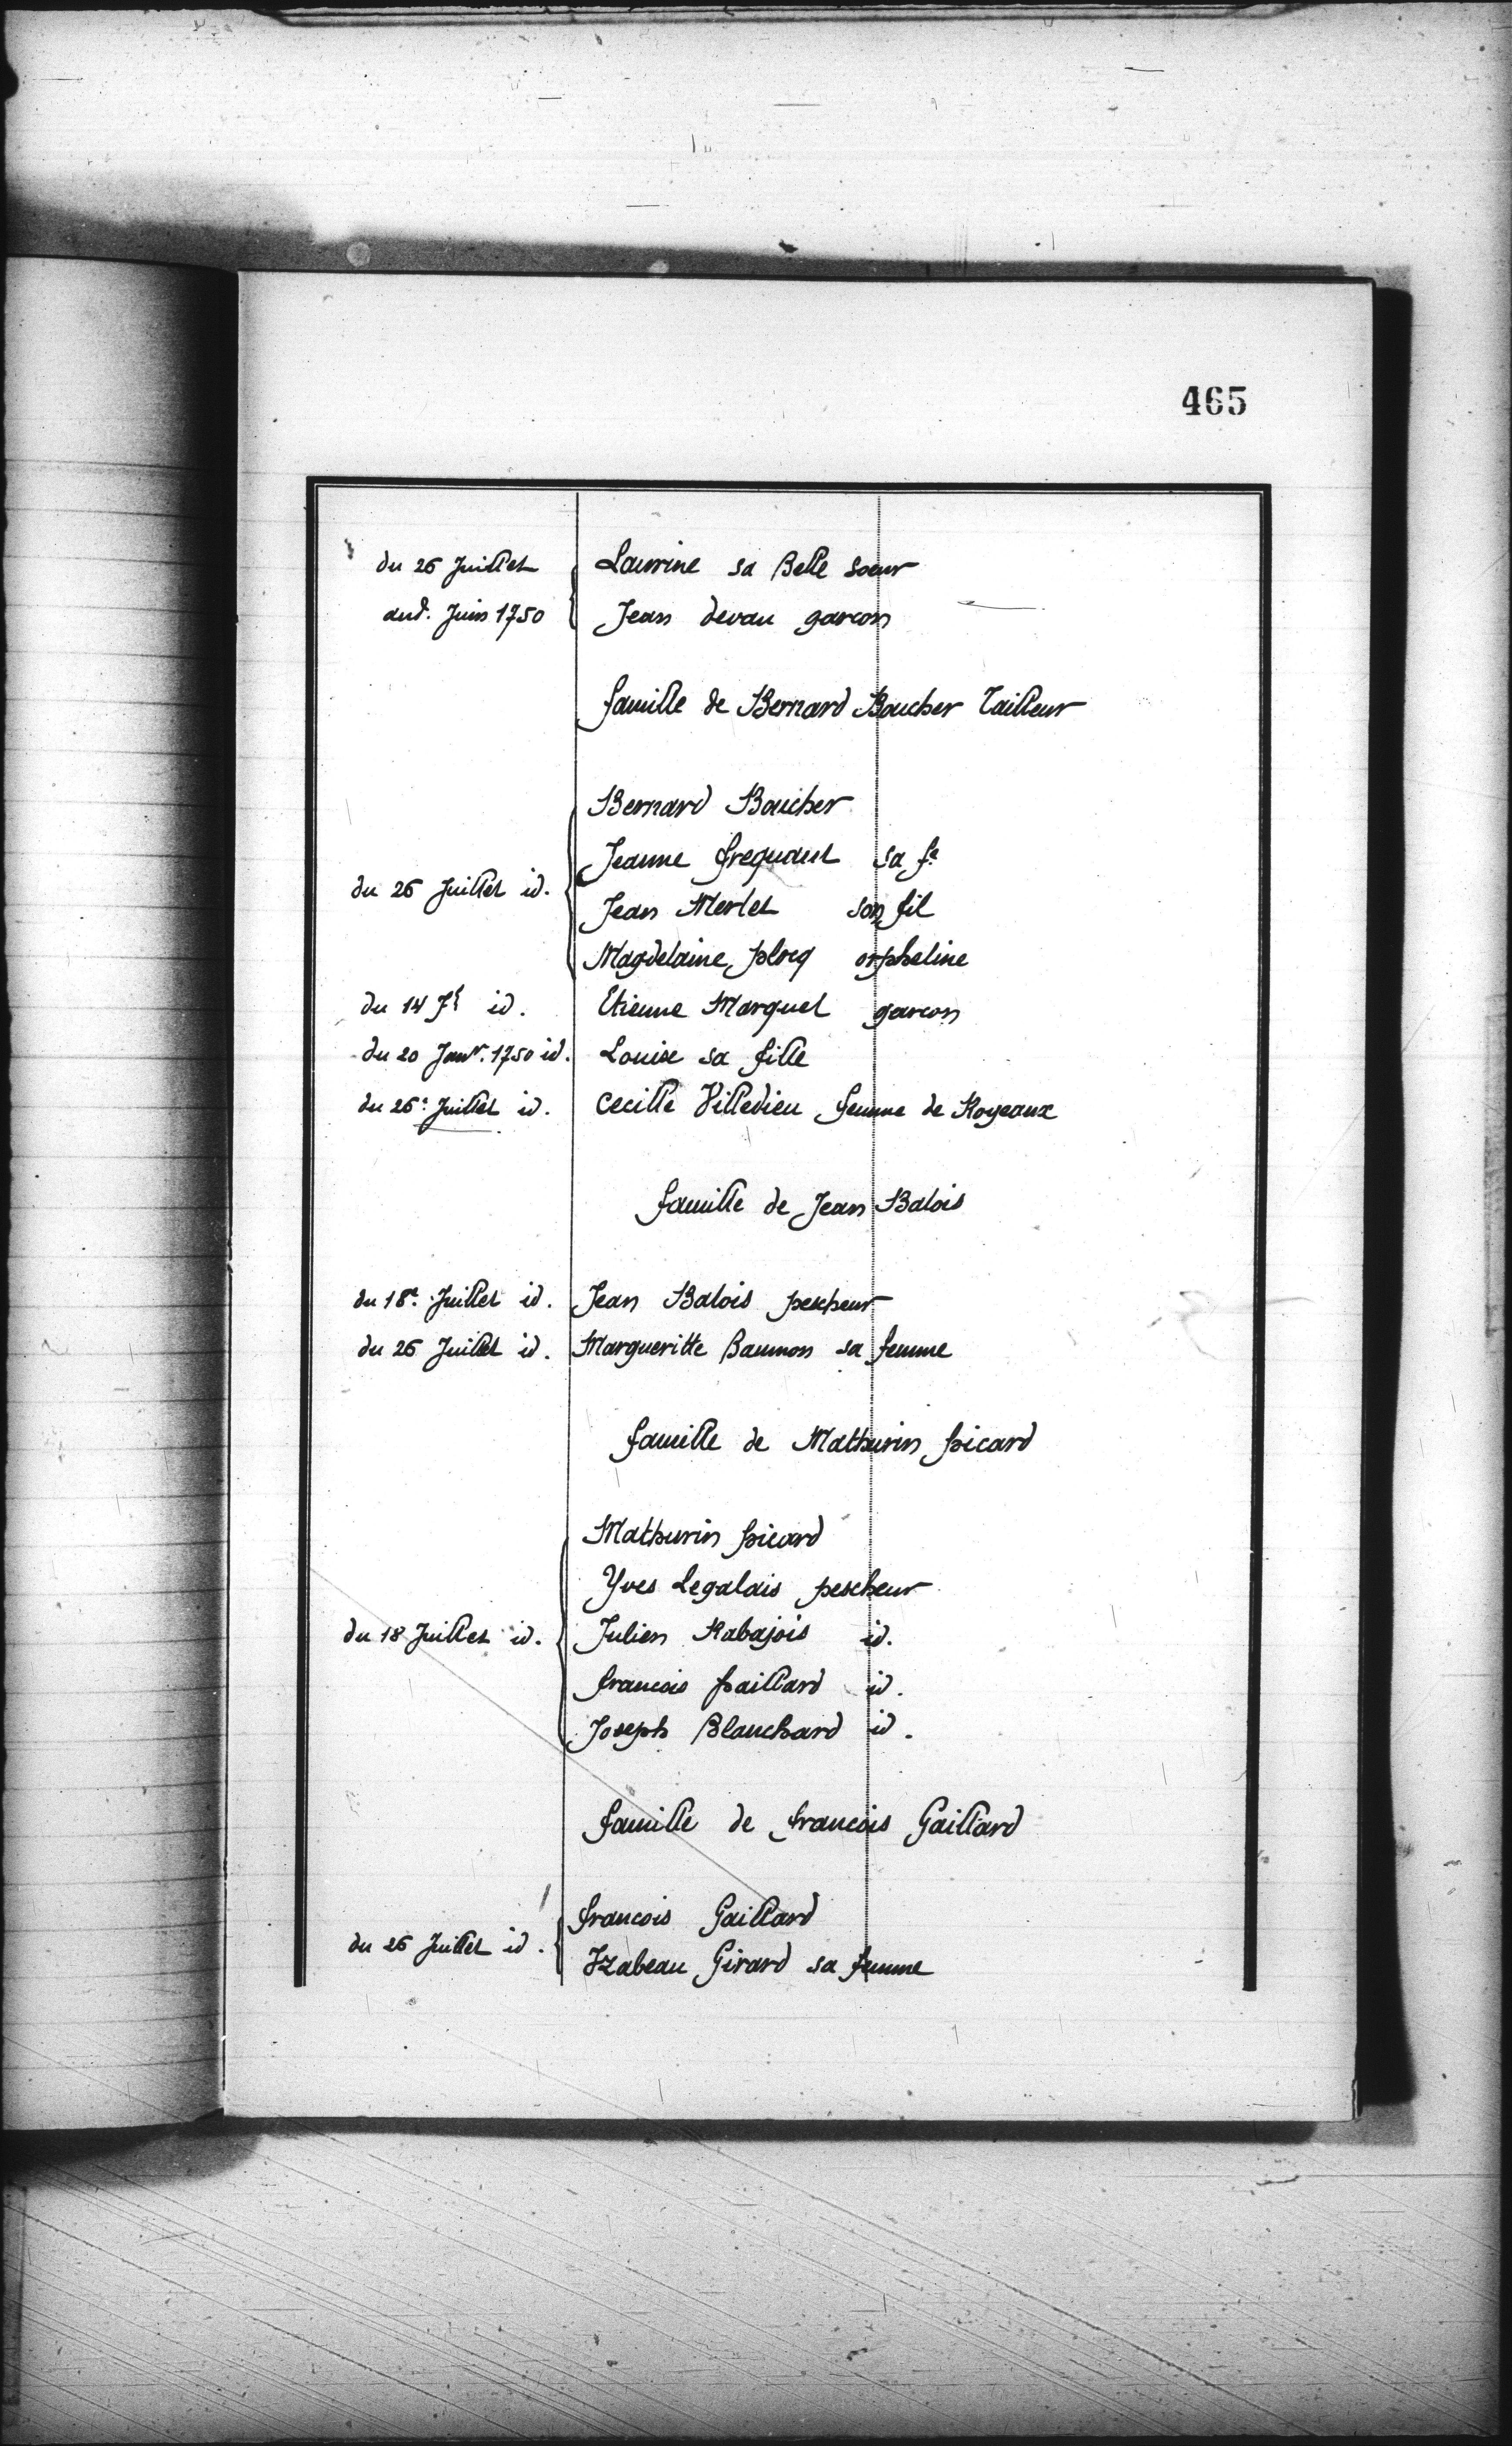 465
du 26 Juillet Laurine sa Belle soeur
aud. Juin 1750 Jean devau garcon
famille de Bernard Boucher Tailleur
Bernard Boucher
Jeanne frequant sa fe
du 26 Juillet id.
Jean Merlet son fil
Magdelaine plocq orpheline
du 14 id. Etienne Marquet garcon
du 20 Janvr. 1750 id. Louise sa fille
du 26e Juillet id. Cecille Villedieu femme de Royeaux
famille de Jean Balois
du 18e. Juillet id. Jean Balois pescheur
du 26 Juillet id. Margueritte Baumon sa femme
famille de Mathurin picard
Mathurin picard
Yves Legalais pescheur
du 18 Juillet id. Julien Rabajois id.
francois paillard id.
Joseph Blanchard id.
famille de francois Gaillard
francois Gaillard
du 26 Juillet id.
Izabeau Girard sa femme